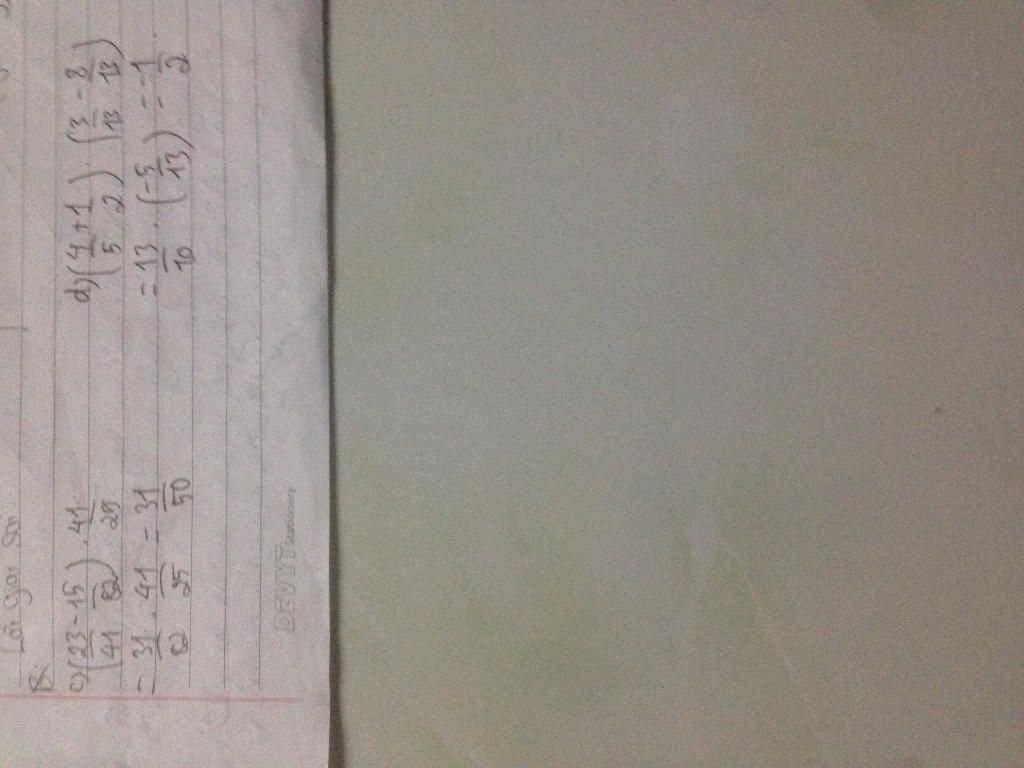 Lời giải
B.
c) (23/41 - 15/82) . 41/25
= 31/82 . 41/25 = 31/50
d) (4/5 + 1/2) . (3/13 - 8/13)
= 13/10 . (-5/13) = -1/2
DEVYT